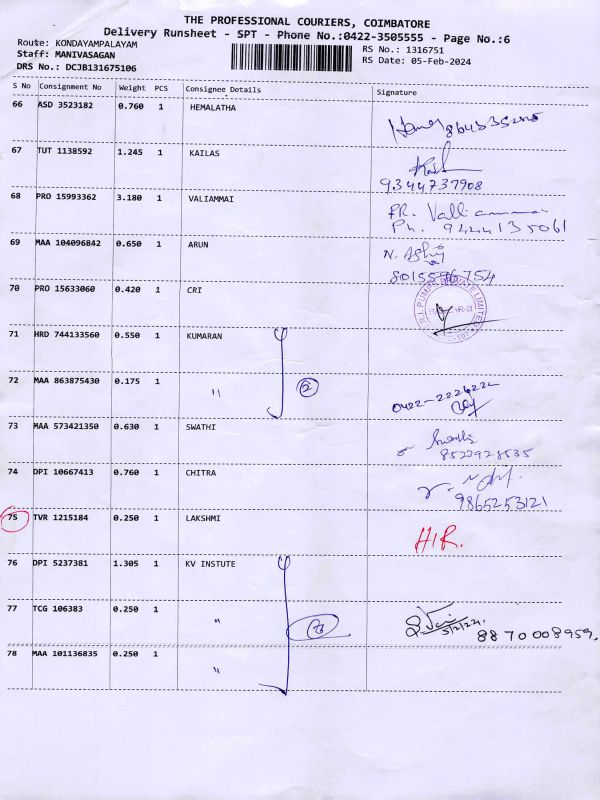 THE PROFESSIONAL COURIERS, COIMBATORE
Delivery Runsheet - SPT - Phone No.:0422-3505555 - Page No.:6
Route: KONDAYAMPALAYAM
RS No.: 1316751
Staff: MANIVASAGAN
RS Date: 05-Feb-2024
DRS No.: DCJB131675106
S No Consignment No Weight PCS Consignee Details Signature
66 ASD 3523182 0.760 1 HEMALATHA
67 TUT 1138592 1.245 1 KAILAS
9344737908
68 PRO 15993362 3.180 1 VALIAMMAI PR. Valliammai
Ph. 9444135061
69 MAA 104096842 0.650 1 ARUN
8015596754
70 PRO 15633060 0.420 1 CRI
71 HRD 744133560 0.550 1 KUMARAN
72 MAA 863875430 0.175 1 " 2
73 MAA 573421350 0.630 1 SWATHI Swathi
8522928535
74 DPI 10667413 0.760 1 CHITRA
9865253121
75 TVR 1215184 0.250 1 LAKSHMI HIR.
76 DPI 5237381 1.305 1 KV INSTUTE
77 TCG 106383 0.250 1 " 3 5/2/24. 8870008959.
78 MAA 101136835 0.250 1 "